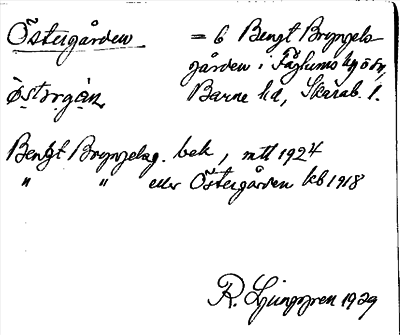 Östergården = 6 Bengt Bryngels
gården i Fåglums by o sn,
Barne hd, Skarab. l.
östərgån
Bengt Bryngelsg. bek, mtl 1924
" " eller Östergården kb 1918
R. Ljunggren 1929